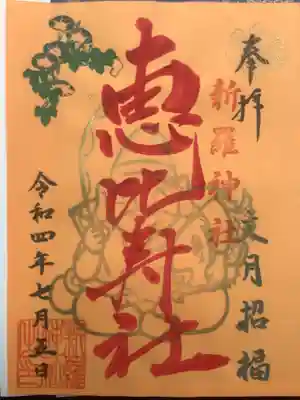 奉拝
新羅神社
文月招福
恵比寿社
令和四年七月五日